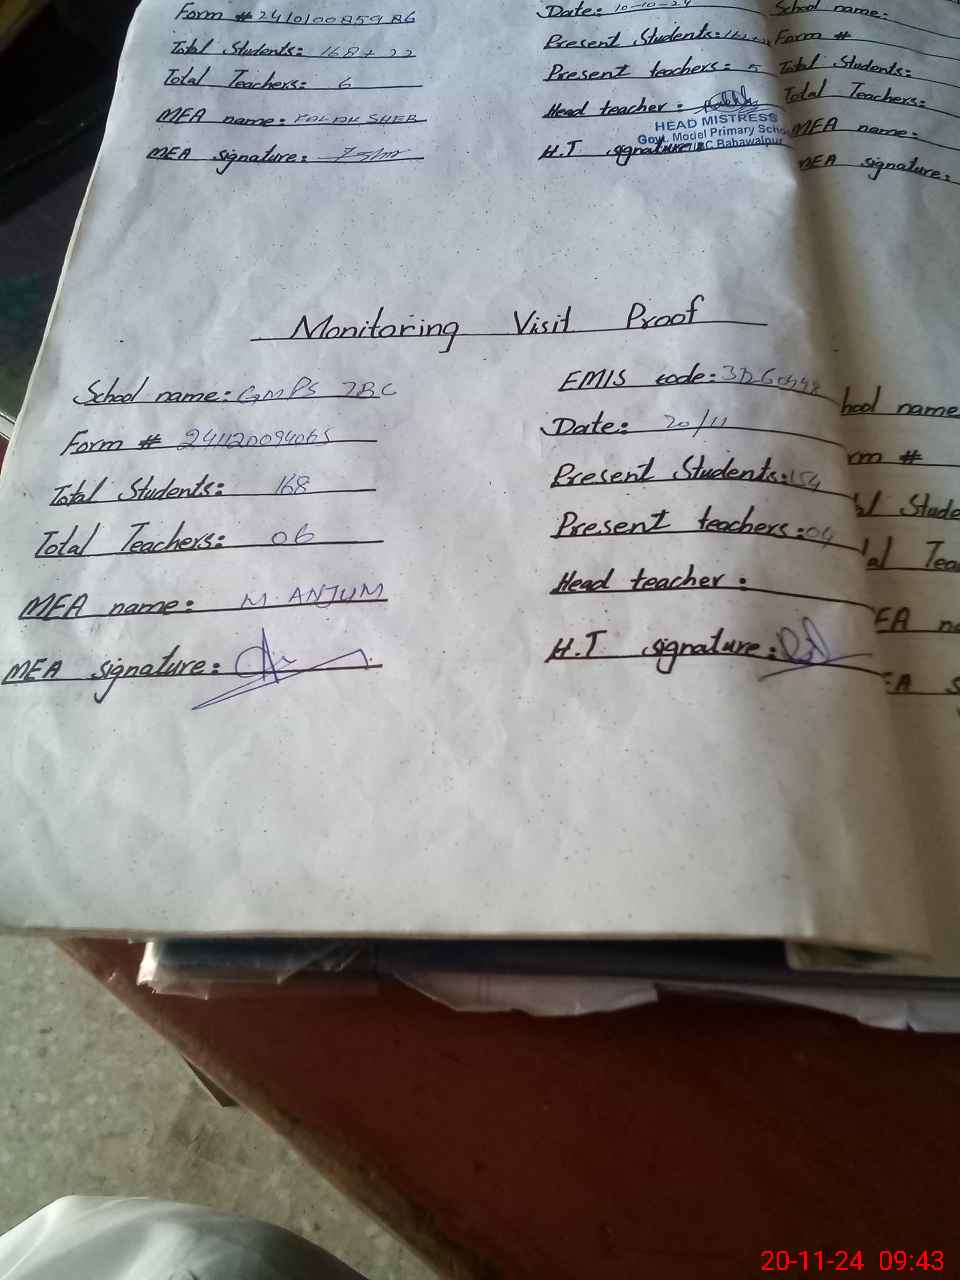 Form # 2410100859 86
Date: 10-10-24
School name:
Total Students: 168+22
Present Students:
Form #
Total Teachers: 6
Present teachers: 5
Total Students:
MEA name:
Head teacher:
Total Teachers:
HEAD MISTRESS
Govt. Model Primary School
MEA name:
MEA signature:
H.T signature:
BC Bahawalpur
MEA signature:
Monitoring Visit Proof
School name: GMPS 7BC
EMIS code:
hool name
Form # 241120094065
Date: 20/11
rm #
Total Students: 168
Present Students: 154
al Stude
Total Teachers: 06
Present teachers: 04
al Tea
MEA name: M. ANJUM
Head teacher:
EA na
MEA signature:
H.T signature:
EA s
20-11-24 09:43